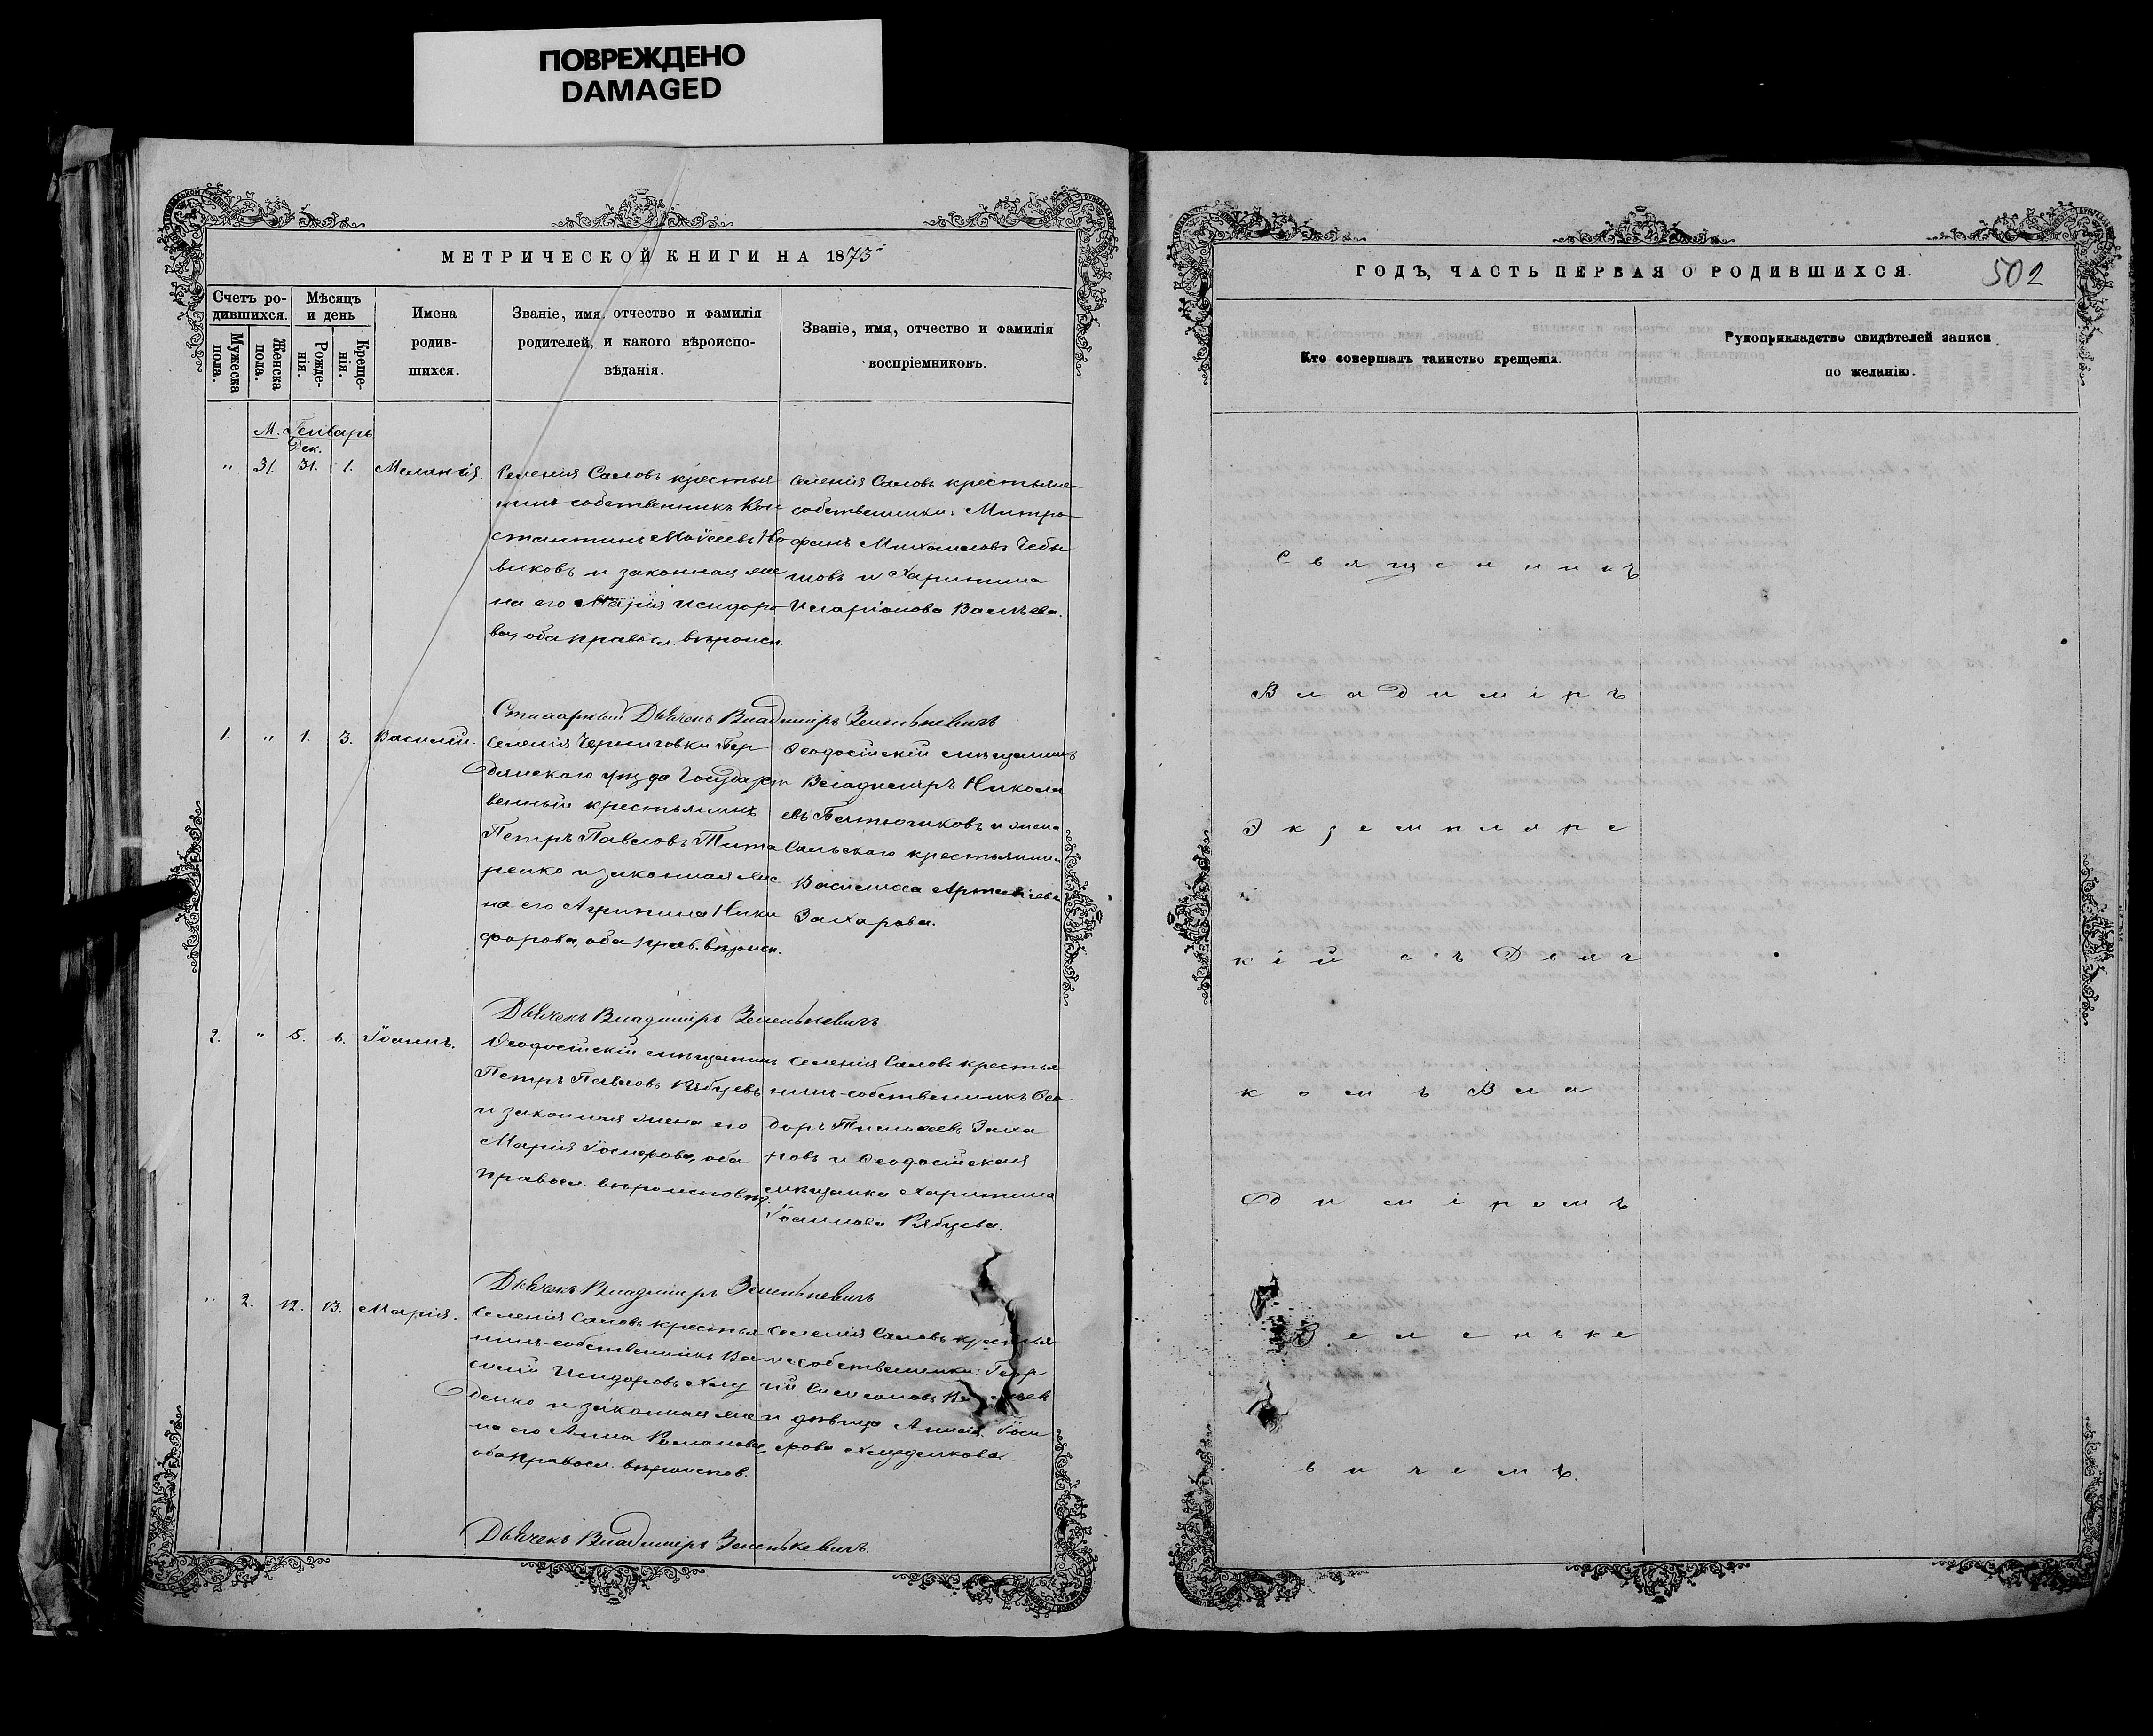 ПОВРЕЖДЕНО
DAMAGED
МЕТРИЧЕСКОЙ КНИГИ НА 1873й
Счетъ ро-
дившихся.
Мужеска
пола.
Женска
пола.
Мѣсяцъ
и день
Рожде-
нія.
Креще-
нія.
Имена
родив-
шихся.
Званіе, имя, отчество и фамилія
родителей, и какого вѣроиспо-
вѣданія.
Званіе, имя, отчество и фамилія
воспріемниковъ.
М. Генварь
Дек.
" 31. 31. 1. Меланія.
Селенія Саловъ крестья
нинъ собственникъ Кон
стантинъ Моѵсеевъ Но
виковъ и законная же
на его Марія Исидоро
ва, оба правосл. вѣроисп.
Селенія Саловъ крестьяне
собственники: Митро
фанъ Михаиловъ
и Харитина
Иларіонова
Стихарный Дьячекъ Владиміръ Зеленькевичъ
1. " 1. 3. Василій.
Селенія Черниговки Бер
дянскаго уѣзда Государст
венный крестьянинъ
Петръ Павловъ Тита
ренко и законная же
на его Агрипина Ники
форова, оба прав. вѣроисп.
Ѳеодосійскій мѣщанинъ
Владиміръ Никола
евъ и жена
Сальскаго крестьянина
Василисса
Захарова.
Дьячекъ Владиміръ Зеленькевичъ
2. " 5. 6. Іоаннъ.
Ѳеодосійскій мѣщанинъ
Петръ Павловъ Рябцевъ
и законная жена его
Марія Іосифова, оба
правосл. вѣроисповѣд.
Селенія Саловъ крестья
нинъ-собственникъ Ѳео
доръ Тимоѳеевъ Заха
ровъ и Ѳеодосійская
мѣщанка Харитина
Іоаннова Рябцева.
Дьячекъ Владиміръ Зеленькевичъ
" 2. 12. 13. Марія.
Селенія Саловъ крестья
нинъ-собственникъ Ва
силій Исидоровъ Хлу
денко и законная же
на его Анна Романова,
оба правосл. вѣроиспов.
Селенія Саловъ крестья
не собственники: Геор
гій Симеоновъ
и дѣвица Анна Іоси
фова
Дьячекъ Владиміръ Зеленькевичъ
ГОДЪ, ЧАСТЬ ПЕРВАЯ О РОДИВШИХСЯ.
502
Кто совершалъ таинство крещенія.
Рукоприкладство свидѣтелей записи
по желанію.
Священникъ
Владиміръ
Экземпляре
кій съ Дьяч
комъ Вла
диміромъ
Зеленьке
вичемъ.